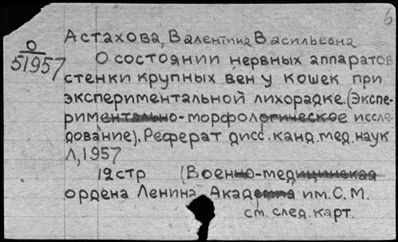 6
Астахова, Валентина Васильевна
О
51957
О состоянии нервных аппаратов
стенки крупных вен у кошек при
экспериментальной лихорадке. (Экспе-
риментально-морфологическое иссле-
дование). Реферат дисс. канд. мед. наук
Л, 1957
12 стр (Военно-медицинская
ордена Ленина Академия им. С. М.
см. след. карт.